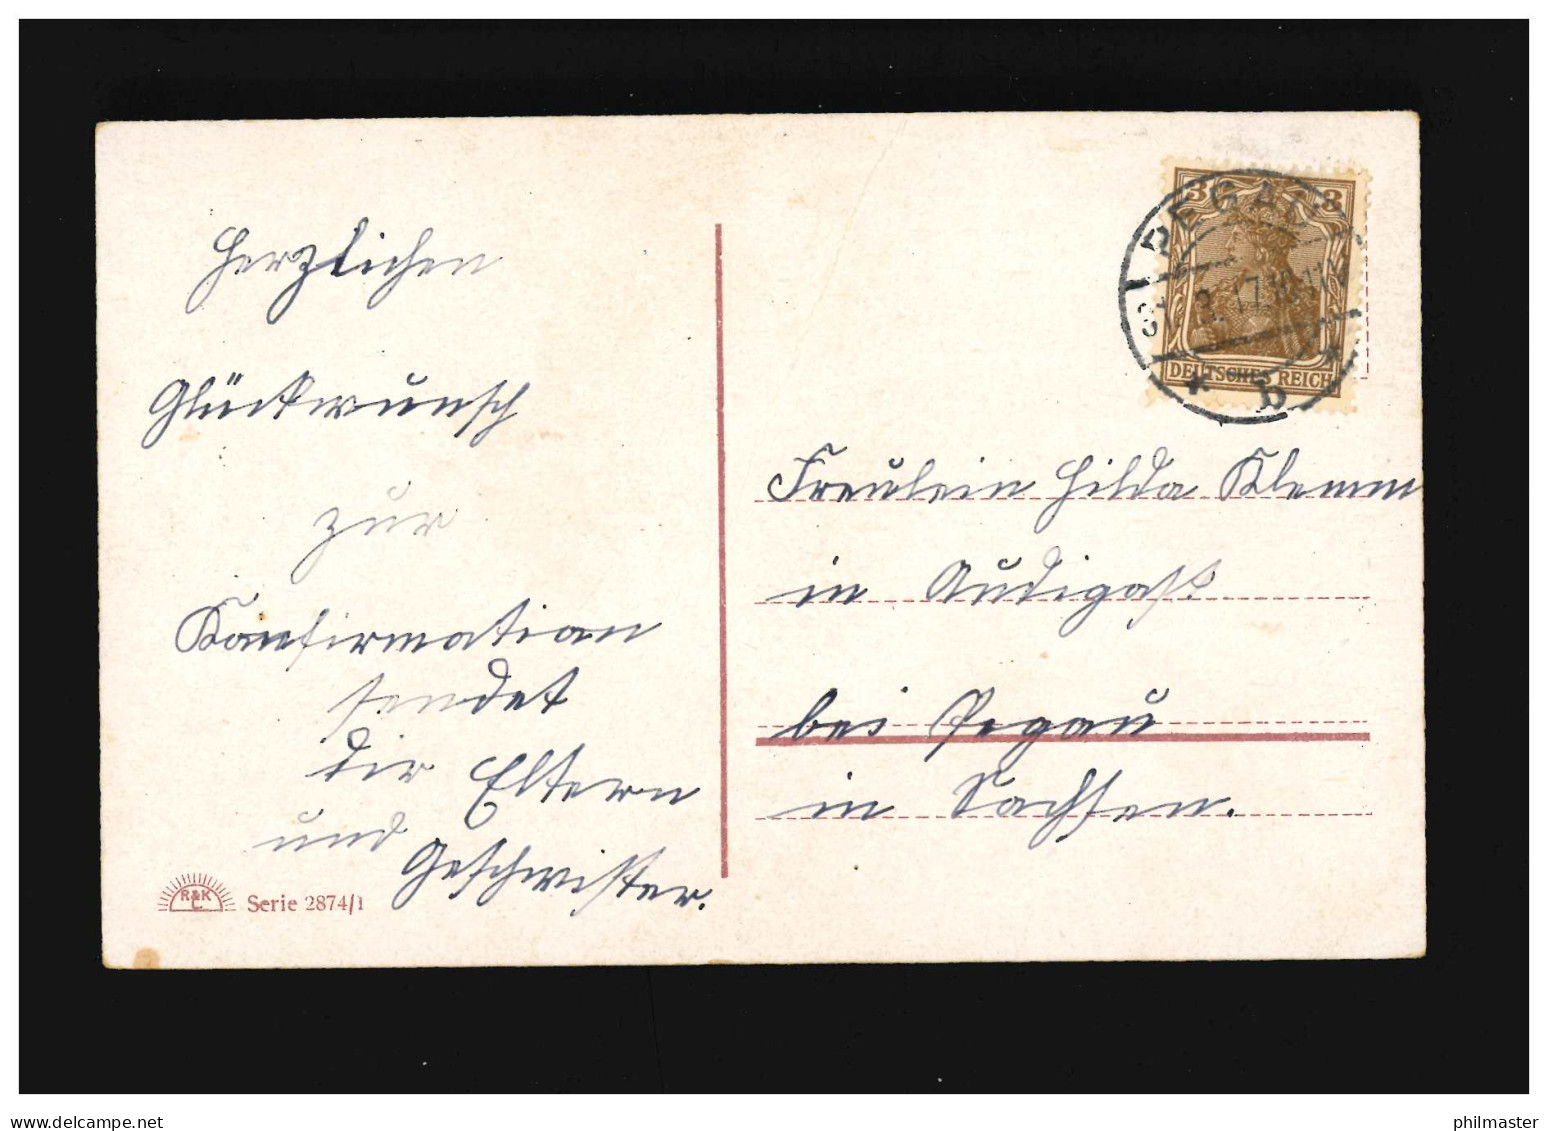 Herzlichen
Glückwunsch
zur
Konfirmation
sendet
dir Eltern
und
Geschwister.
R&K
L
Serie 2874/1
3 3
DEUTSCHES REICH
PEGAU
31. 3. 17. 10-11 V
* b *
Freulein Hilda Klemm
in Audigast
bei Pegau
in Sachsen.
philmaster